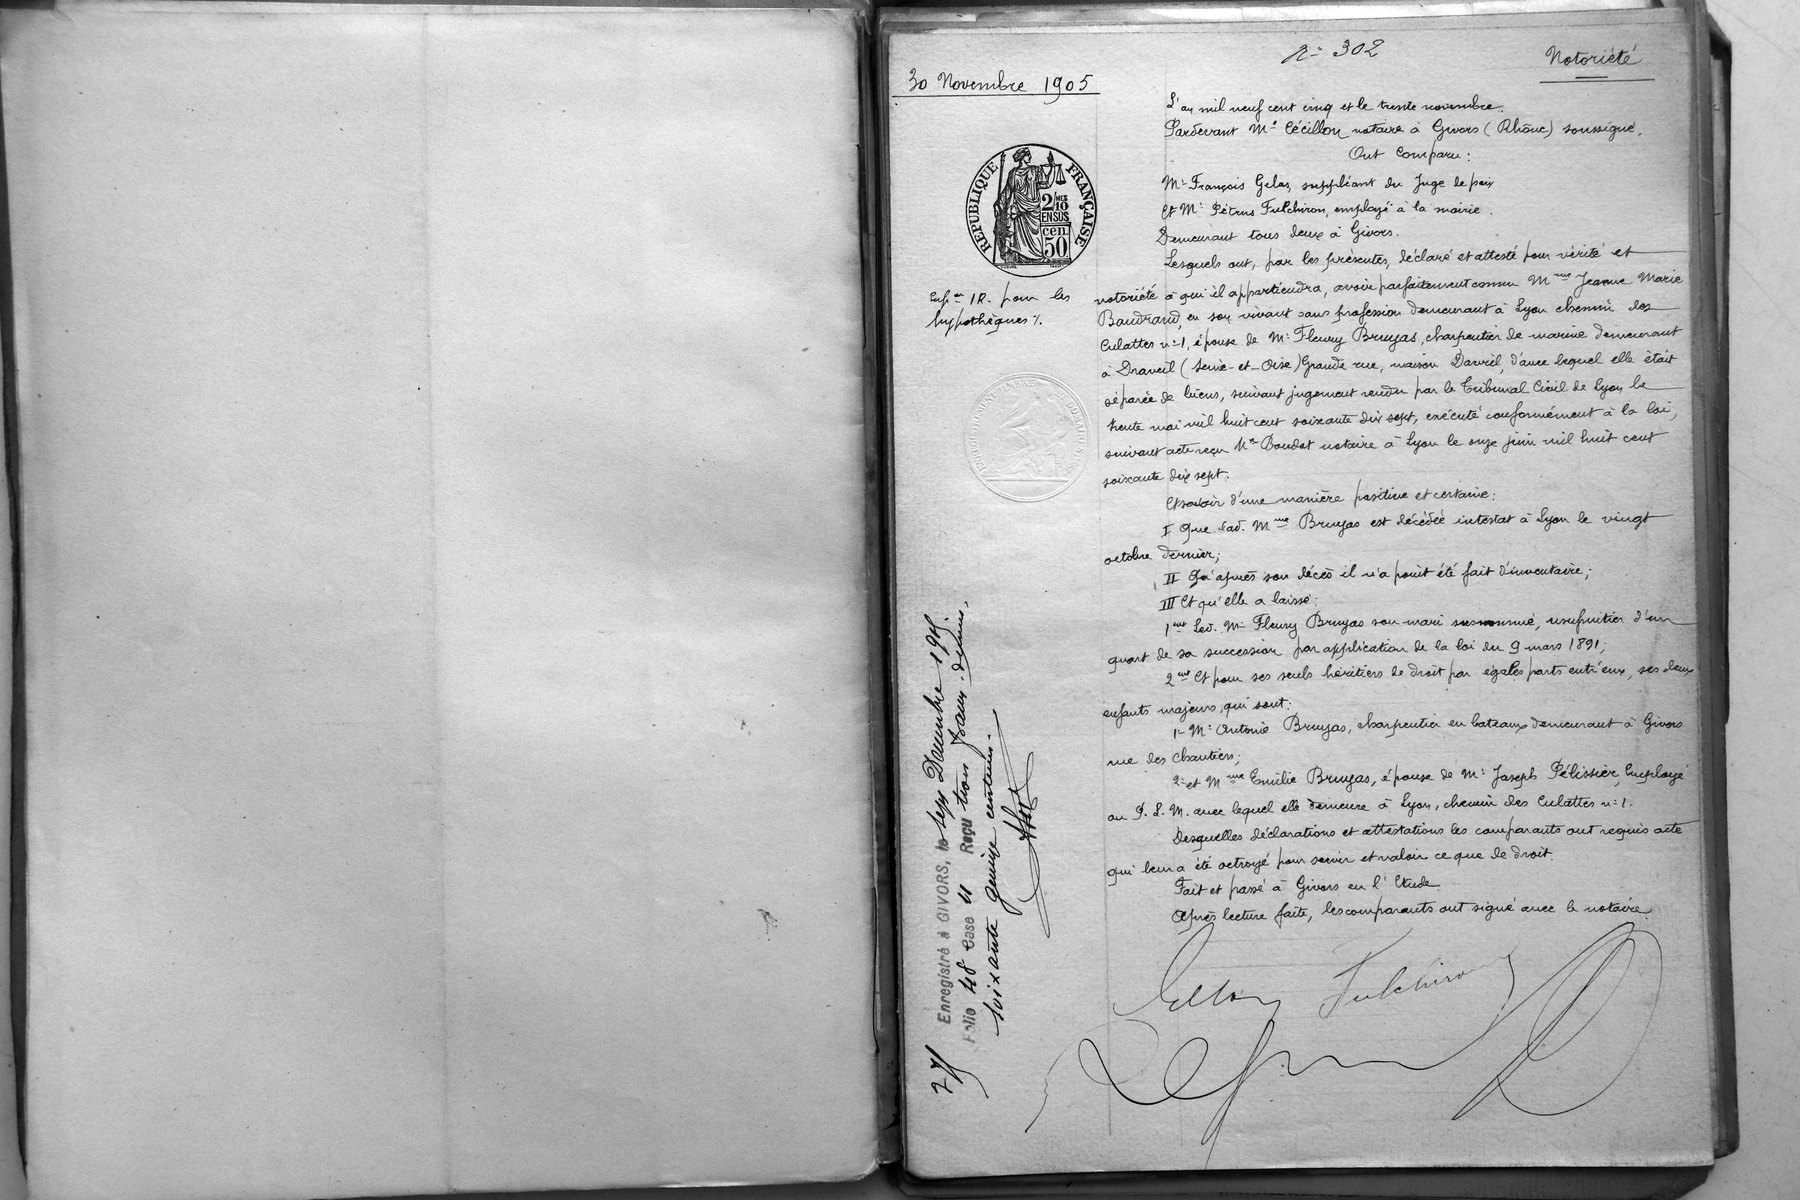 N° 302
Notoriété
30 Novembre 1905
L'an mil neuf cent cinq et le trente novembre.
Pardevant Me Cécillon notaire à Givors (Rhône) soussigné.
Ont Comparu:
Mr François Gelas, suppléant du Juge de paix
Et Mr Pétrus Fulchiron, employé à la mairie.
Demeurant tous deux à Givors.
Lesquels ont, par les présentes, déclaré et attesté pour vérité et
notoriété à qui il appartiendra, avoir parfaitement connu Mme Jeanne Marie
Baudrand, en son vivant sans profession demeurant à Lyon chemin des
Culattes n°1, épouse de Mr Fleury Bruyas, charpentier de marine demeurant
à Draveil (Seine-et-Oise) Grande rue, maison Darriel, d'avec lequel elle était
séparée de biens, suivant jugement rendu par le Tribunal Civil de Lyon le
trente mai mil huit cent soixante dix sept, exécuté conformément à la loi,
suivant acte reçu Me Baudot notaire à Lyon le onze juin mil huit cent
soixante dix sept.
Et savoir d'une manière positive et certaine:
I Que lad. Mme Bruyas est décédée intestat à Lyon le vingt
octobre dernier;
II Qu'après son décès il n'a point été fait d'inventaire;
III Et qu'elle a laissé:
1ent Led. Mr Fleury Bruyas son mari susnommé, usufruitier d'un
quart de sa succession par application de la loi du 9 mars 1891;
2ent Et pour ses seuls héritiers de droit par égales parts entr'eux, ses deux
enfants majeurs, qui sont:
1° Mr Antoine Bruyas, charpentier en bateaux demeurant à Givors
rue des Chantiers;
2° et Mme Emilie Bruyas, épouse de Mr Joseph Pélissier, Employé
au P. L. M. avec lequel elle demeure à Lyon, chemin des Culattes n°1.
Desquelles déclarations et attestations les comparants ont requis acte
qui leur a été octroyé pour servir et valoir ce que de droit.
Fait et passé à Givors en l'Etude
Après lecture faite, les comparants ont signé avec le notaire.
Fulchiron
RÉPUBLIQUE FRANÇAISE
2/10
EN SUS
50 cen
1 R. pour les
hypothèques %.
Enregistré à GIVORS, le sept Décembre 1905.
Folio 48 Case 11 Reçu trois francs. décimes.
soixante quinze centimes.